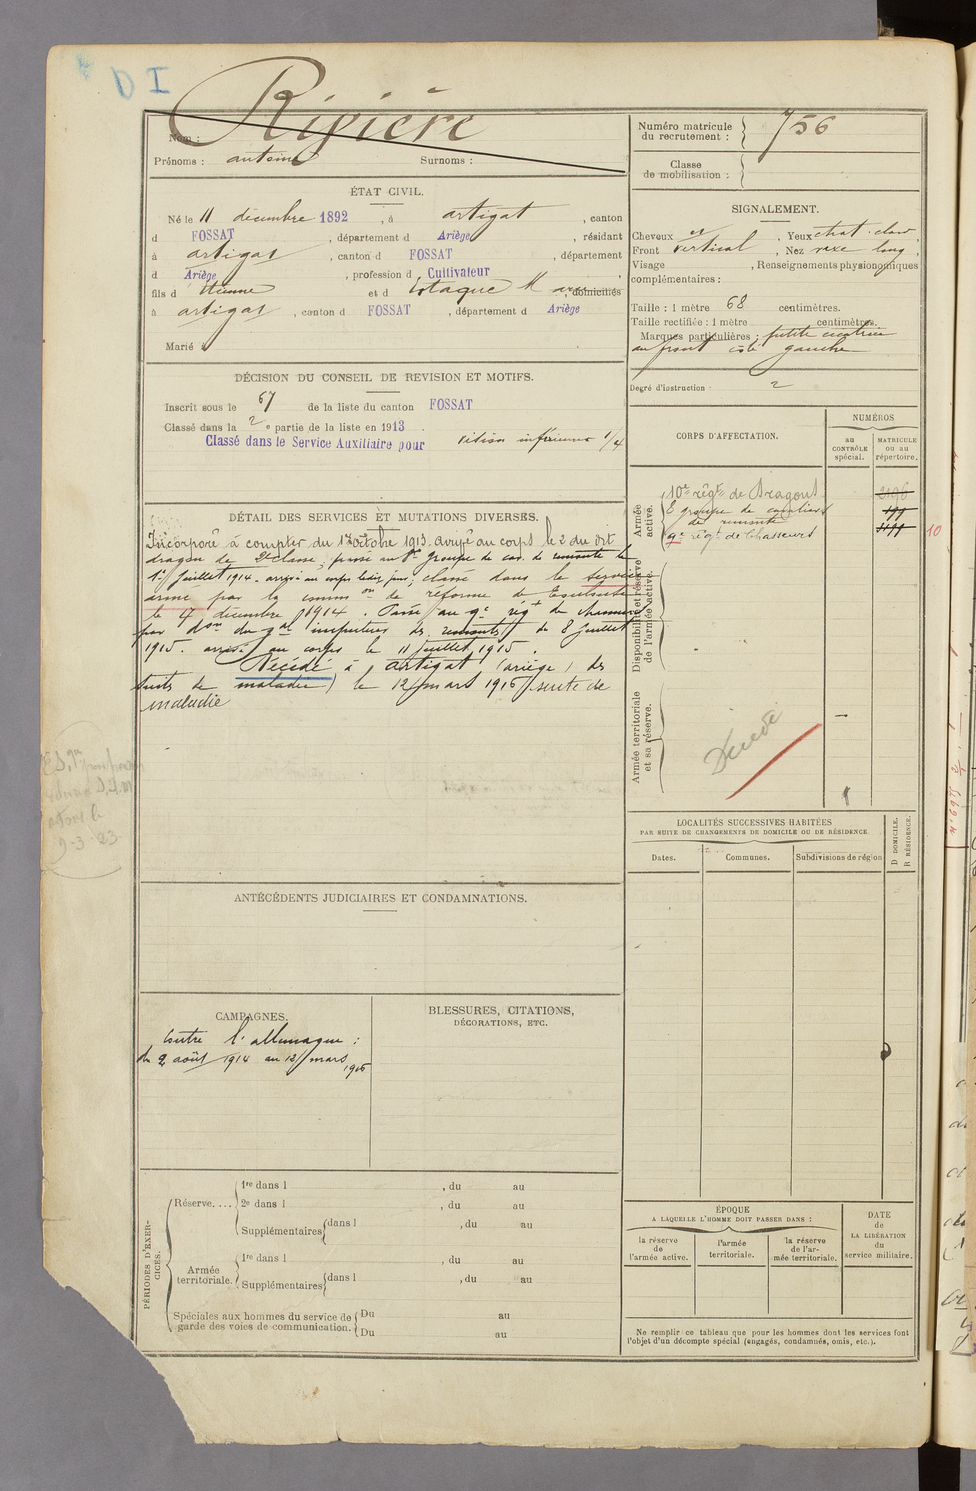 D I
Rivière
Nom :
Prénoms : antoine Surnoms :
Numéro matricule du recrutement : 756
Classe de mobilisation :
ÉTAT CIVIL.
Né le 11 décembre 1892, à artigat, canton
d FOSSAT, département d Ariège, résidant
à artigat, canton d FOSSAT, département
d Ariège, profession d Cultivateur,
fils d Etienne et d Estaque Marie, domiciliés
à artigat, canton d FOSSAT, département d Ariège
Marié :
SIGNALEMENT.
Cheveux et Yeux chat. clair,
Front vertical, Nez rexe long,
Visage, Renseignements physionomiques
complémentaires :
Taille : 1 mètre 68 centimètres.
Taille rectifiée : 1 mètre centimètres.
Marques particulières : petite cicatrice
au front côté gauche
Degré d'instruction : 2
DÉCISION DU CONSEIL DE REVISION ET MOTIFS.
Inscrit sous le 67 de la liste du canton FOSSAT
Classé dans la 2e partie de la liste en 1913.
Classé dans le Service Auxiliaire pour vision inférieure 1/4
CORPS D'AFFECTATION.
NUMÉROS
au CONTRÔLE spécial.
MATRICULE ou au répertoire.
Armée active.
10e régt de Dragons
8e groupe de cavaliers
de remonte
9e régt de Chasseurs
10
Disponibilité et réserve de l'armée active.
Armée territoriale et sa réserve.
Décédé
DÉTAIL DES SERVICES ET MUTATIONS DIVERSES.
Incorporé à compter du 1er octobre 1913. arrivé au corps le 2 du dit
dragon de 2e classe; passé au groupe de cav. de remonte le
1er juillet 1914. arrivé au corps ledit jour; classé dans le service
armé par la common de réforme de
le 4 décembre 1914. Passé au 9e régt de chasseurs
par don du gal inspecteur des remontes du 8 juillet
1915. arrivé au corps le 11 juillet 1915.
Décédé à Artigat (ariège) des
suites de maladie) le 12 mars 1916 suite de
maladie
LOCALITÉS SUCCESSIVES HABITÉES
PAR SUITE DE CHANGEMENTS DE DOMICILE OU DE RÉSIDENCE.
Dates. Communes. Subdivisions de région
D DOMICILE. R RÉSIDENCE.
ANTÉCÉDENTS JUDICIAIRES ET CONDAMNATIONS.
CAMPAGNES.
Contre l'allemagne :
du 2 août 1914 au 12 mars
1916
BLESSURES, CITATIONS,
DÉCORATIONS, ETC.
PÉRIODES D'EXERCICES.
Réserve....
1re dans l , du au
2e dans l , du au
Supplémentaires dans l , du au
Armée territoriale.
1re dans l , du au
Supplémentaires dans l , du au
Spéciales aux hommes du service de garde des voies de communication.
Du au
Du au
ÉPOQUE
A LAQUELLE L'HOMME DOIT PASSER DANS :
la réserve de l'armée active.
l'armée territoriale.
la réserve de l'armée territoriale.
DATE de LA LIBÉRATION du service militaire.
Ne remplir ce tableau que pour les hommes dont les services font
l'objet d'un décompte spécial (engagés, condamnés, omis, etc.).